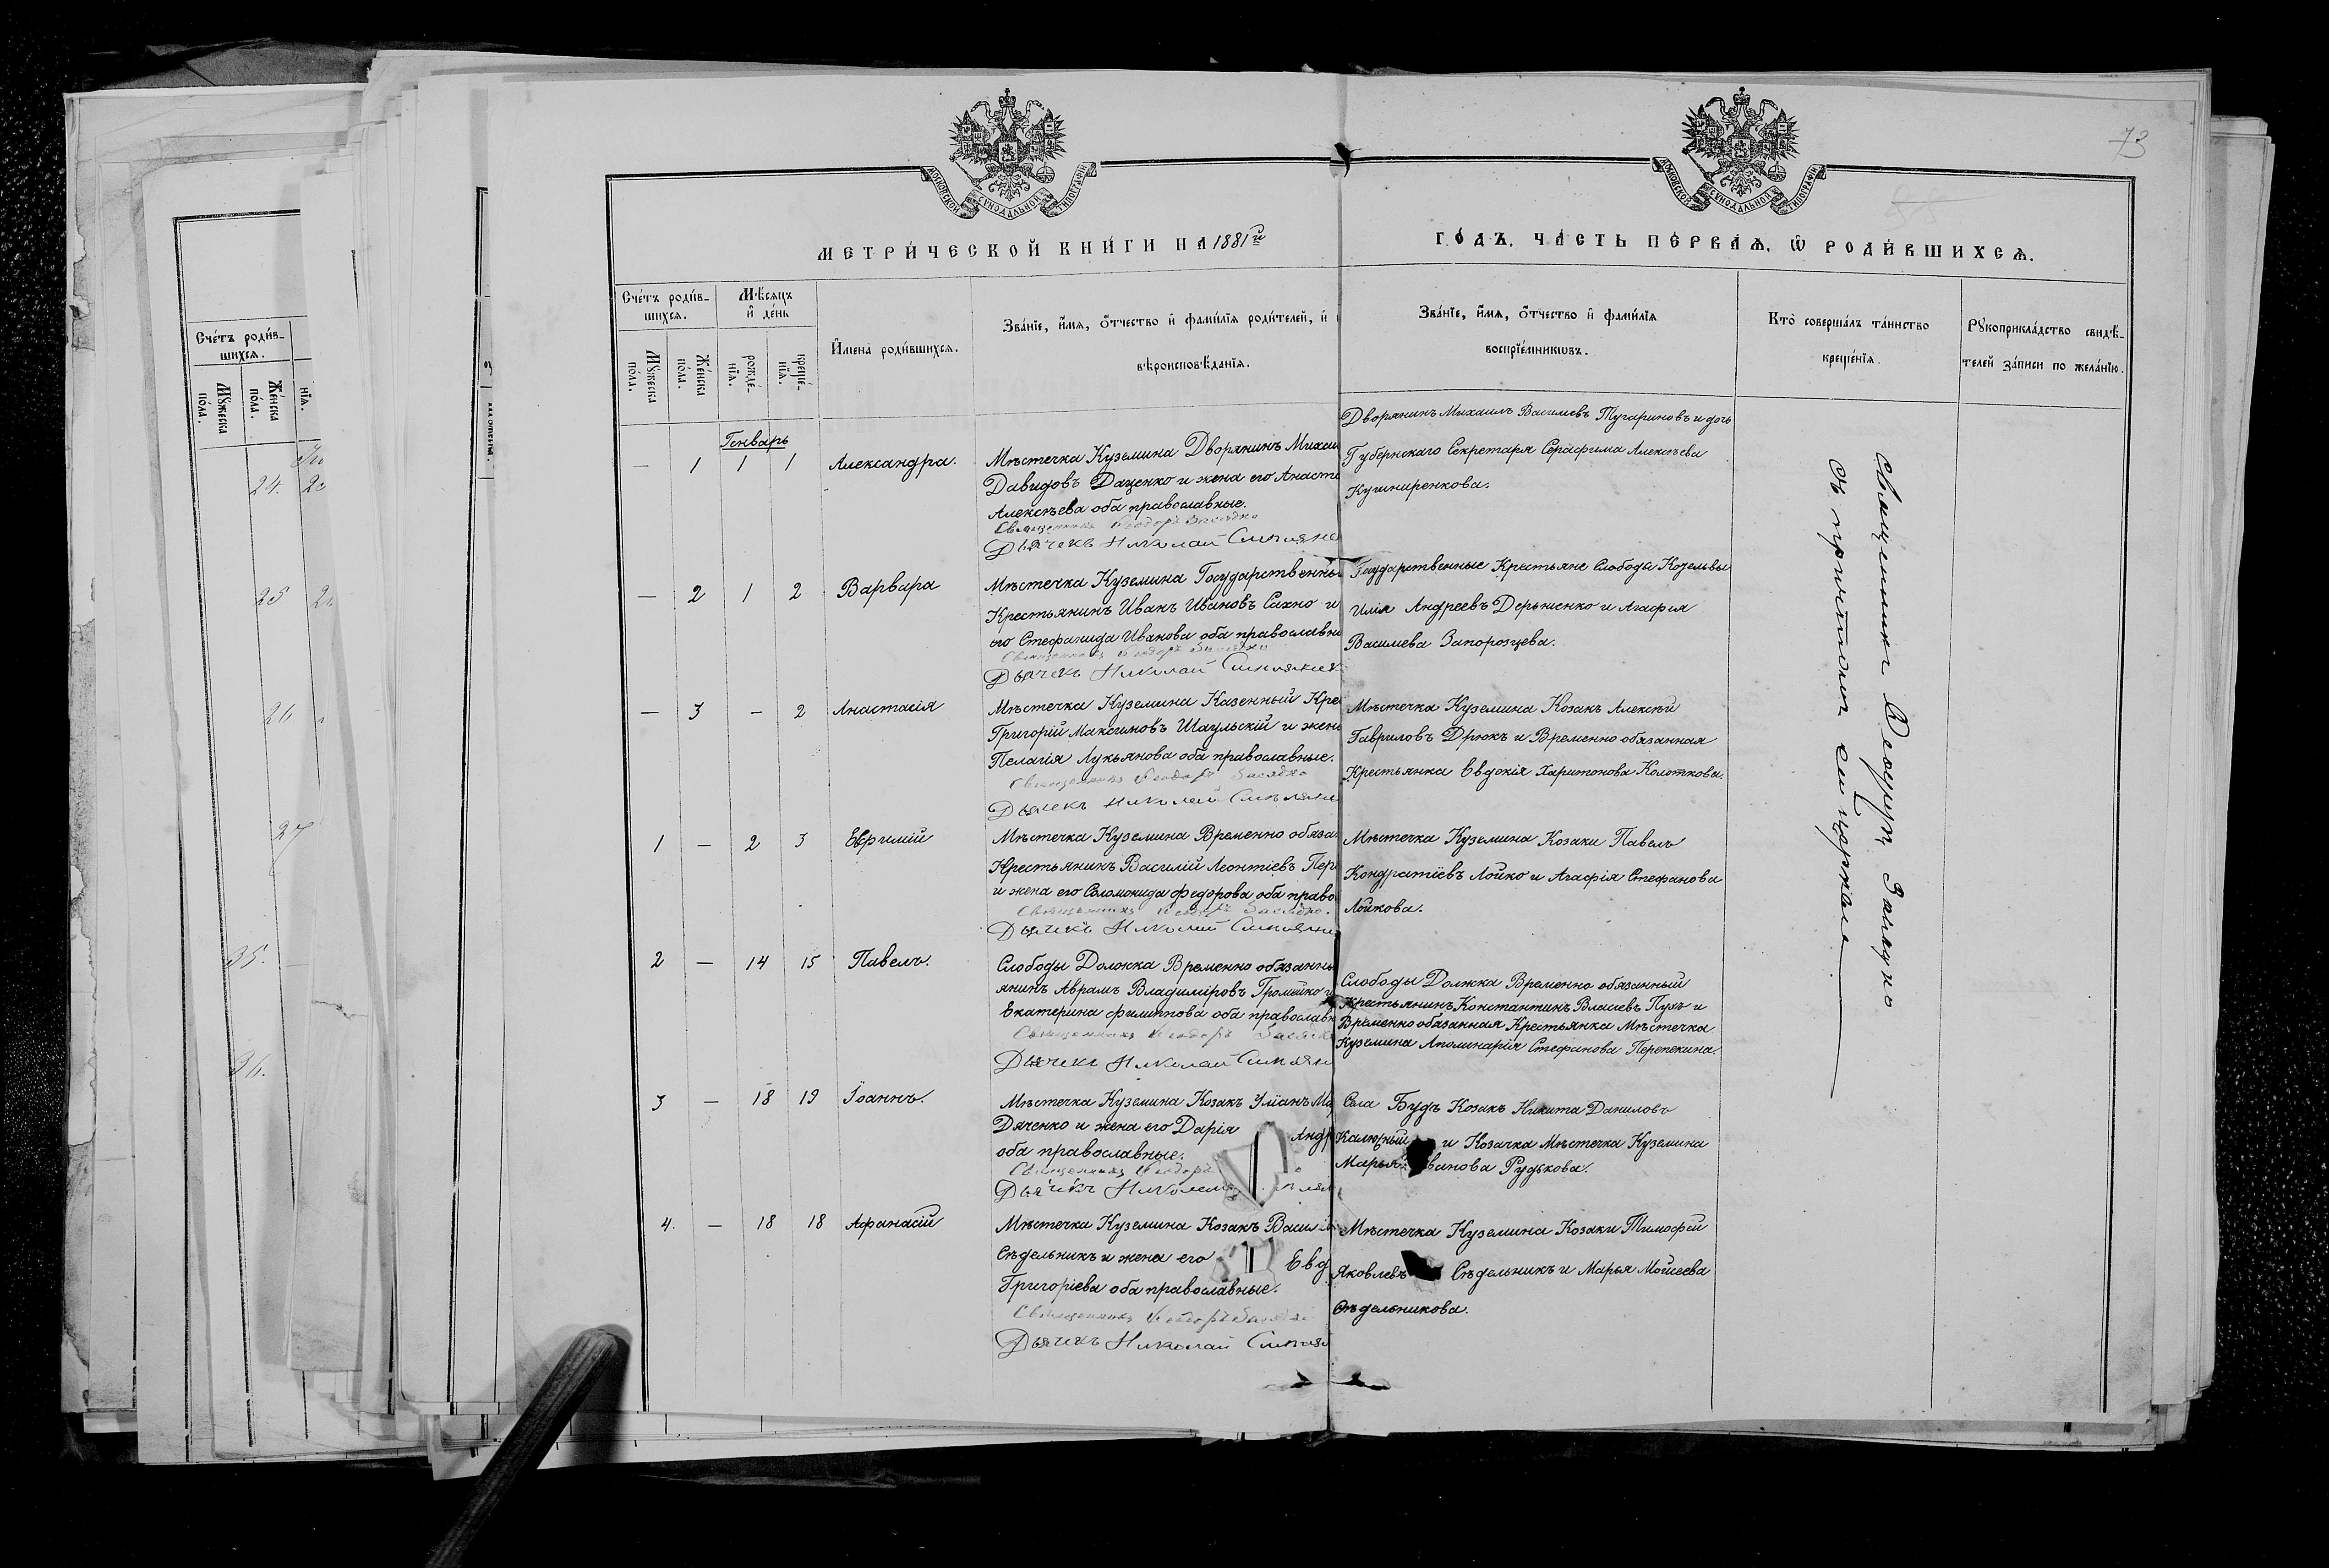 МОСКОВСКОЙ СѴНОДАЛЬНОЙ ТИПОГРАФІИ
МОСКОВСКОЙ СѴНОДАЛЬНОЙ ТИПОГРАФІИ
73
МЕТРИ́ЧЕСКОЙ КНИ́ГИ НА 1881й
ГО́ДЪ, ЧА́СТЬ ПЕ́РВАѦ, Ѡ РОДИ́ВШИХСѦ.
Сче́тъ роди́в-
шихсѧ.
Мꙋ́жеска
по́ла.
Же́нска
по́ла.
Мѣ́сѧцъ
и҆ де́нь
рожде́-
нїѧ.
креще́-
нїѧ.
И҆мена̀ роди́вшихсѧ.
Зва́нїе, и҆́мѧ, ѻ҆́тчество и҆ фами́лїѧ роди́телей, и҆
вѣроисповѣ́данїѧ.
Зва́нїе, и҆́мѧ, ѻ҆́тчество и҆ фами́лїѧ
воспрїе́мникѡвъ.
Кто̀ соверша́лъ та́инство
креще́нїѧ.
Рꙋкоприкла́дство свидѣ́-
телей за́писи по жела́нїю.
Генварь
— 1 1 1 Александра.
Мѣстечка Куземина Дворянинъ Михаи
Давидовъ Даценко и жена его Анаста
Алексѣева оба православные.
Священникъ Ѳеодоръ Засядко
Дьячекъ Николай
Дворянинъ Михаилъ Василіевъ Тугариновъ и дочь
Губернскаго Секретаря Серафима Алексѣева
Кушниренкова.
— 2 1 2 Варвара
Мѣстечка Куземина Государственны
Крестьянинъ Иванъ Ивановъ Сахно и
его Стефанида Иванова оба православн
Священникъ Ѳеодоръ Засядко
Дьячекъ Николай
Государственные Крестьяне Слободы Козельвы
Илія Андреевъ и Агафія
Василіева Запорозцева.
— 3 — 2 Анастасія
Мѣстечка Куземина Казенный Кре
Григорій Максимовъ Шаульскій и жена
Пелагія Лукьянова оба православные.
Священникъ Ѳеодоръ Засядко
Дьячекъ Николай
Мѣстечка Куземина Козакъ Алексѣй
Гавриловъ Дрюкъ и Временно обязанная
Крестьянка Евдокія Харитонова Колоткова.
1 — 2 3 Евфимій
Мѣстечка Куземина Временно обяза
Крестьянинъ Василій Леонтіевъ Пер
и жена его Соломонида Федорова оба право
Священникъ Ѳеодоръ Засядко.
Дьячекъ Николай
Мѣстечка Куземина Козаки Павелъ
Кондратіевъ Лойко и Агафія Стефанова
Лойкова.
2 — 14 15 Павелъ.
Слободы Должка Временно обязанны
янинъ Аврамъ Владиміровъ Громейко и
Екатерина Филиппова оба православн
Священникъ Ѳеодоръ Засядк
Дьячекъ Николай
Слободы Должка Временно обязанный
Крестьянинъ Константинъ Власіевъ Пухъ и
Временно обязанная Крестьянка Мѣстечка
Куземина Аполинарія Стефанова Перепекина.
3 — 18 19 Іоаннъ.
Мѣстечка Куземина Козакъ Уліанъ Ма
Дяченко и жена его Дарія Андр
оба православные.
Священникъ Ѳеодоръ
Дьячекъ Николай
Села Будъ Козакъ Никита Даниловъ
Калюжный и Козачка Мѣстечка Куземина
Марья ванова Рудькова.
4. — 18 18 Афанасій
Мѣстечка Куземина Козакъ Васил
Сѣдельникъ и жена его Евд
Григоріева оба православные.
Священникъ Ѳеодоръ Засядк
Дьячекъ Николай
Мѣстечка Куземина Козаки Тимофей
Яковлевъ Сѣдельникъ и Марья Мойсеева
Сѣдельникова.
Священникъ Ѳеодоръ Засядко
Съ причтомъ
Сче́тъ роди́в-
шихсѧ.
Мꙋ́жеска
по́ла.
Же́нска
по́ла.
нїѧ.
24.
25
26
27
35.
36.